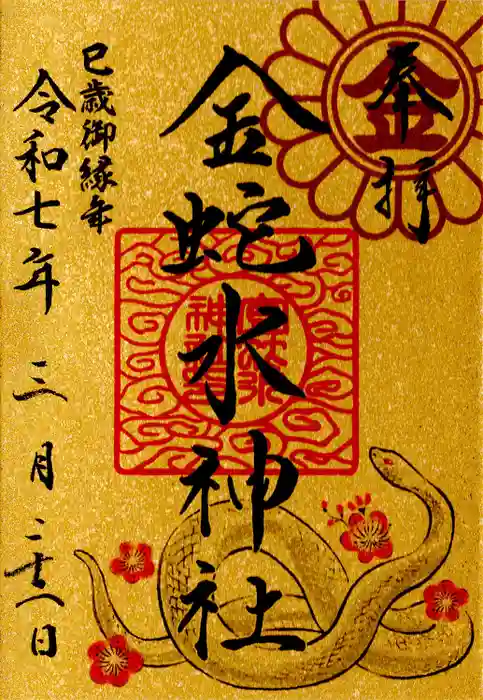 奉拝
金
金蛇水神社
巳歳御縁年
令和七年三月二十八日